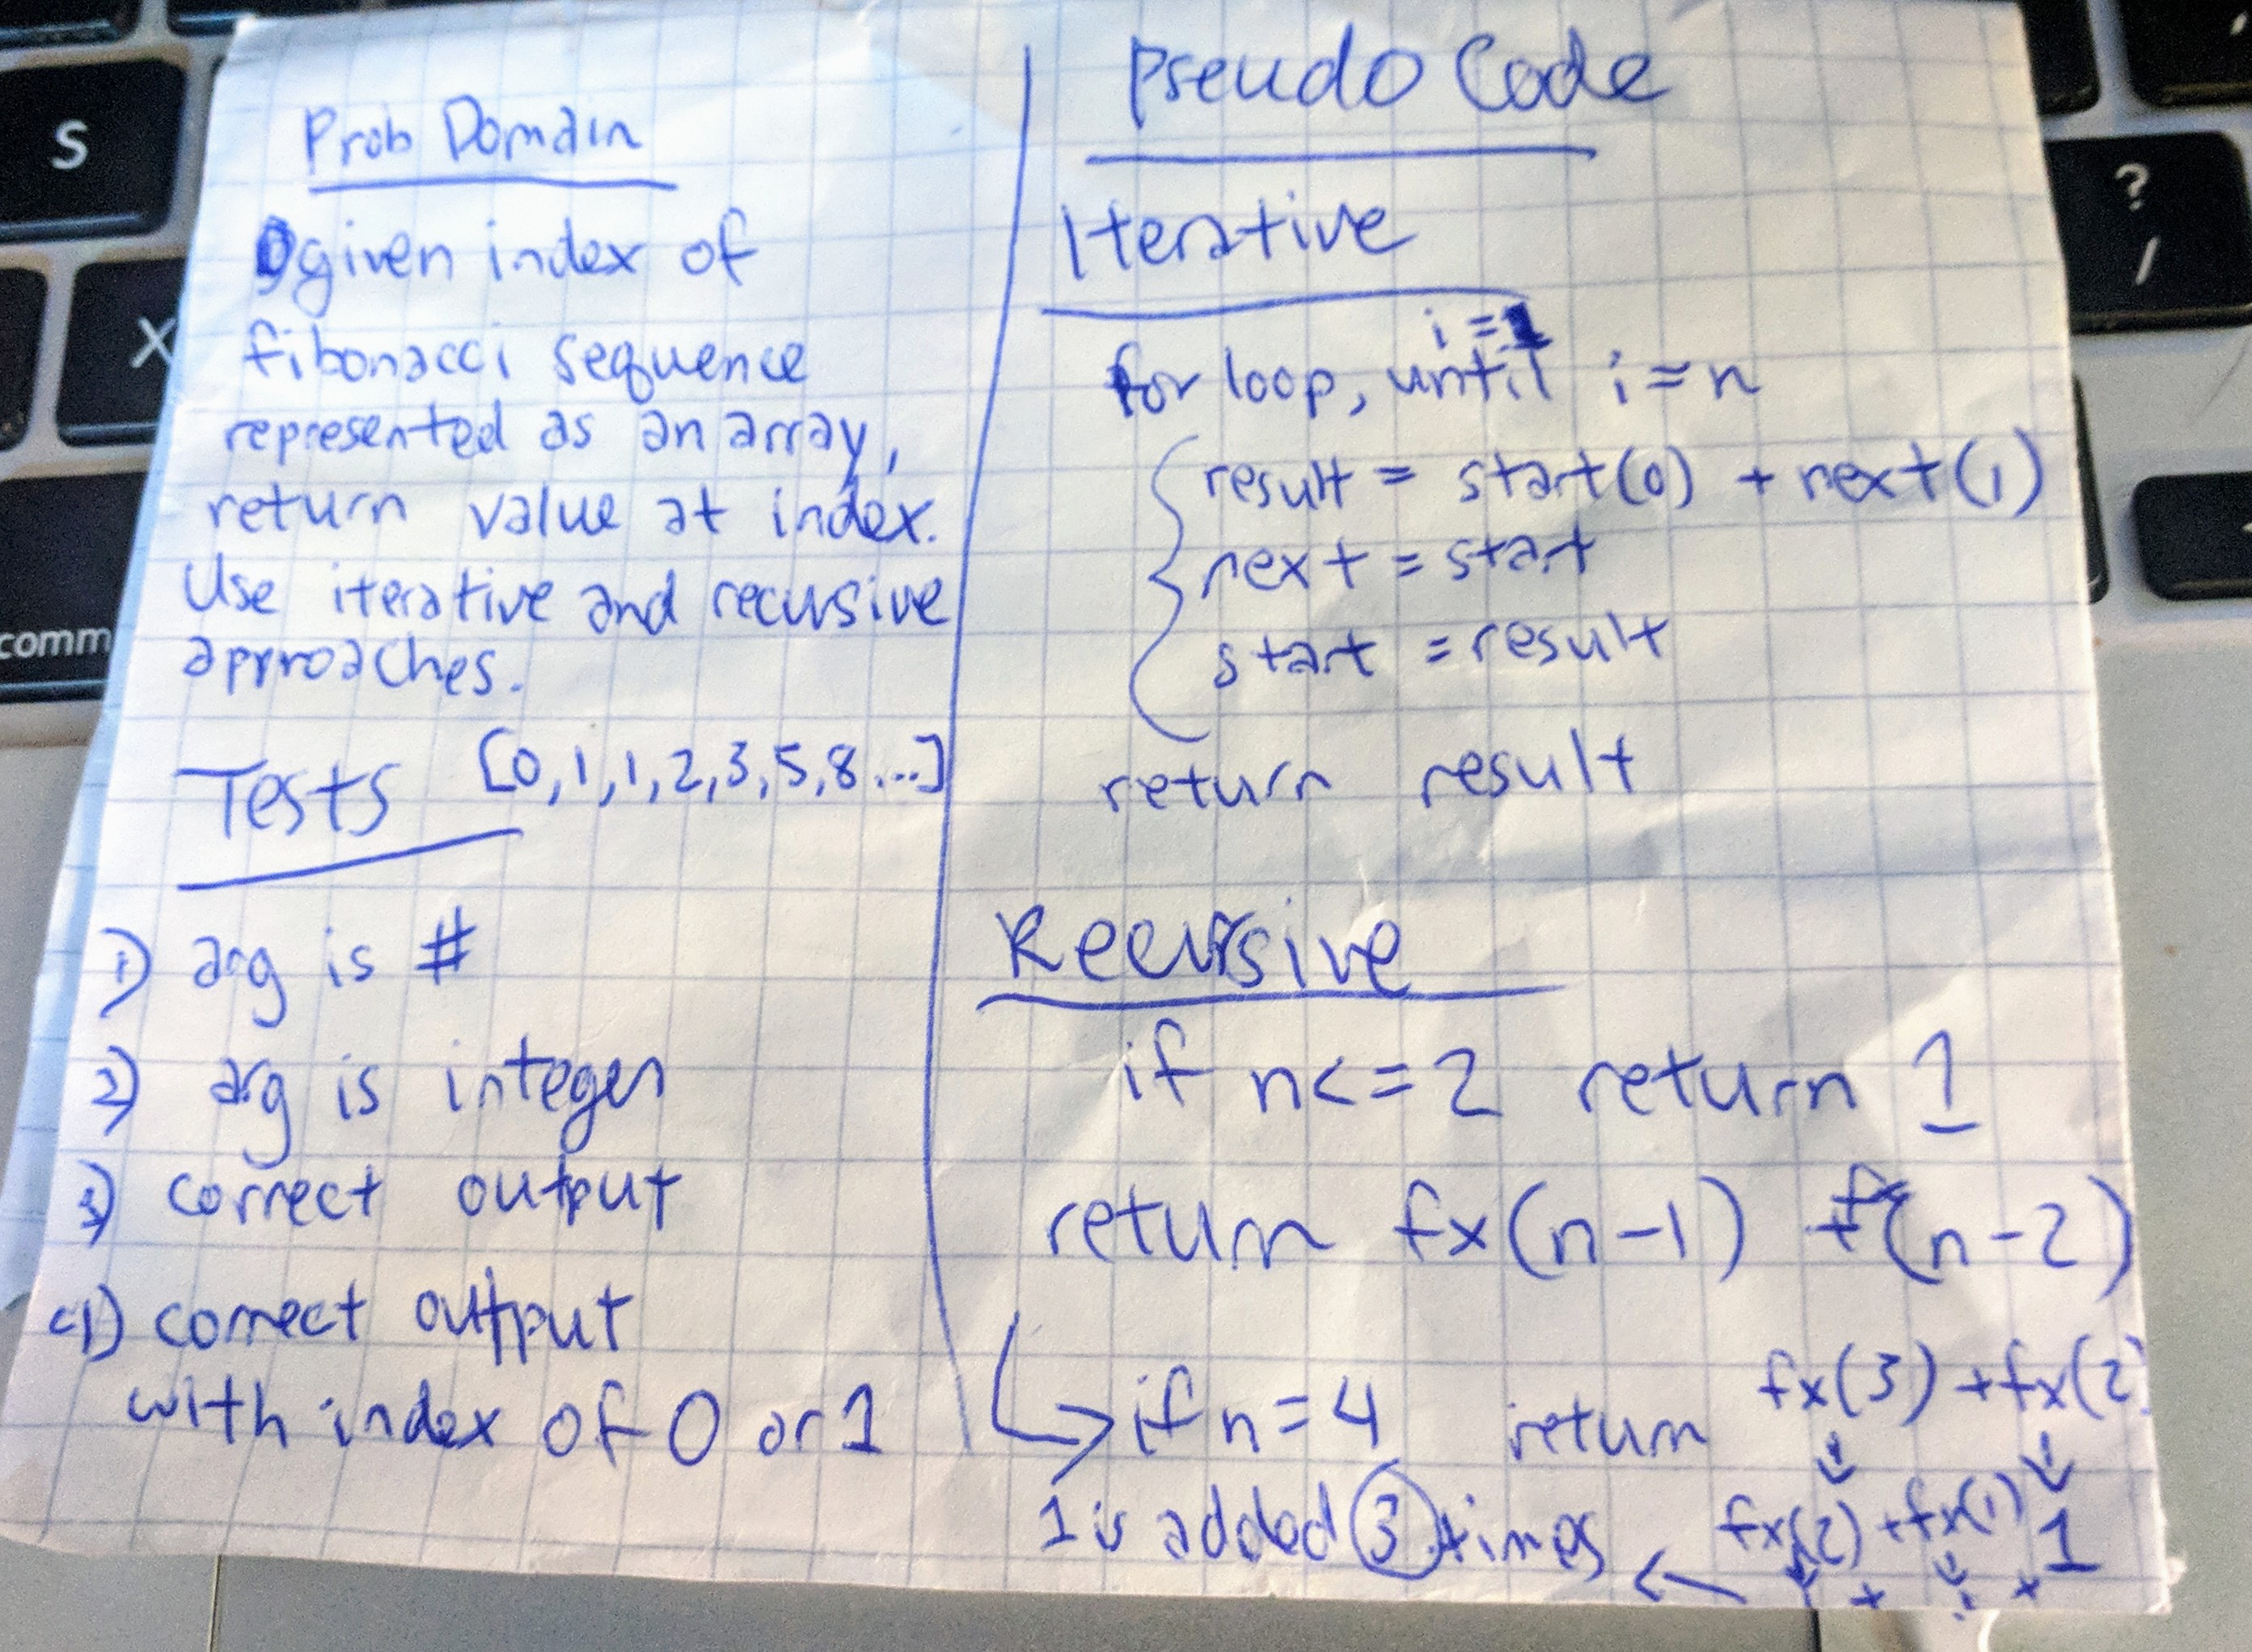 Prob Domain
given index of
fibonacci sequence
represented as an array,
return value at index.
Use iterative and recursive
approaches.
Tests [0,1,1,2,3,5,8...]
1) arg is #
2) arg is integer
3) correct output
4) correct output
with index of 0 or 1
Pseudo Code
Iterative
i =1
for loop, until i = n
result = start(0) + next(1)
next = start
start = result
return result
Recursive
if n<=2 return 1
return fx(n-1) + (n-2)
if n=4 return fx(3) + fx(2)
1 is added 3 times
fx(2) + fx(1) 1
+ +
S
X
comm
?
/